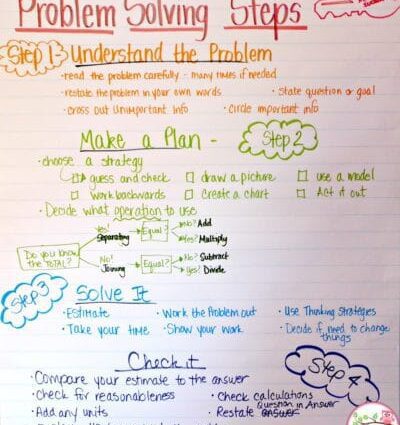 Problem Solving Steps
Step 1
Understand the Problem
• read the problem carefully - many times if needed
• restate the problem in your own words • state question or goal
• cross out unimportant info • circle important info
Make a Plan -
Step 2
• choose a strategy
guess and check draw a picture use a model
work backwards Create a chart Act it out
• Decide what operation to use
Do you know the TOTAL?
No! Separating Equal? No? Add
Yes? Multiply
No! Joining Equal? No? Subtract
Yes? Divide
Step 3
Solve It
• Estimate • Work the Problem out • Use Thinking Strategies
• Take your time • Show your work • Decide if need to change things
Check it
Step 4
• Compare your estimate to the answer
• Check for reasonableness • Check calculations
• Add any units • Restate answer Question in Answer